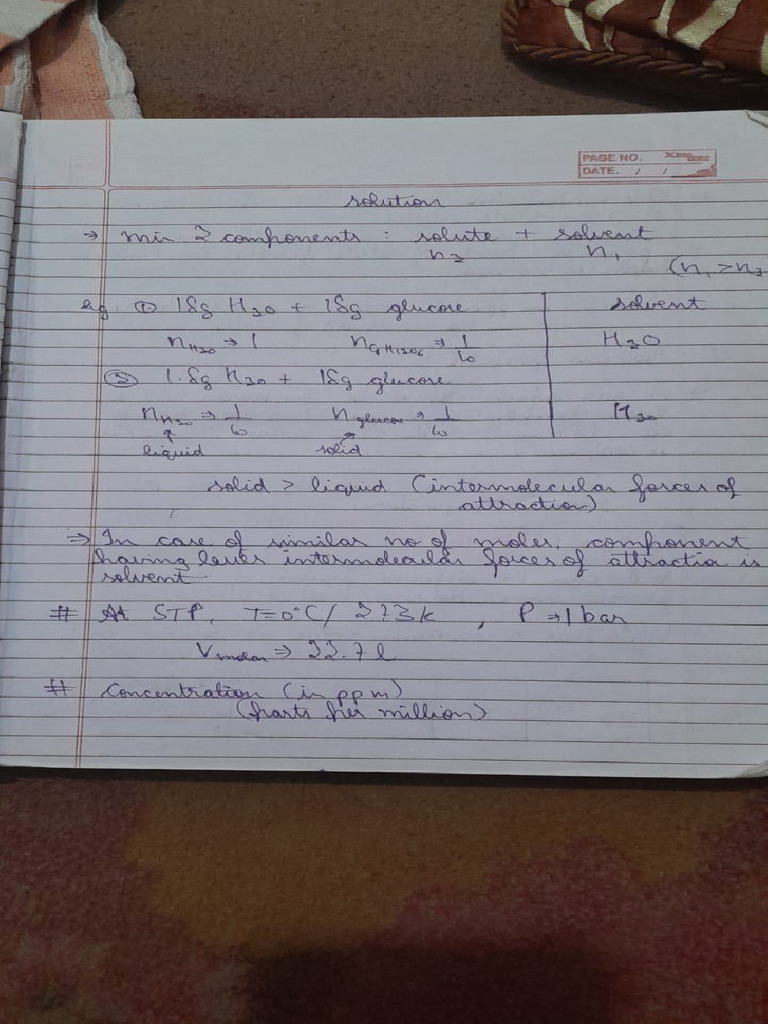 PAGE NO.
DATE. / /
solution
→ min 2 components : solute + solvent
n₂ n₁
(n₁ > n₂
eg. ① 18g H₂O + 18g glucose solvent
nH₂O → 1 nC₆H₁₂O₆ → 1/10 H₂O
② 1.8g H₂O + 18g glucose
nH₂O → 1/10 n glucose → 1/10 H₂O
↑ liquid ↗ solid
solid > liquid (intermolecular forces of
attraction)
⇒ In case of similar no of moles, component
having lesser intermolecular forces of attraction is
solvent.
# At STP, T=0°C/ 273k , P → 1 bar
Vmolar ⇒ 22.7 l
# Concentration (in ppm)
(parts per million)